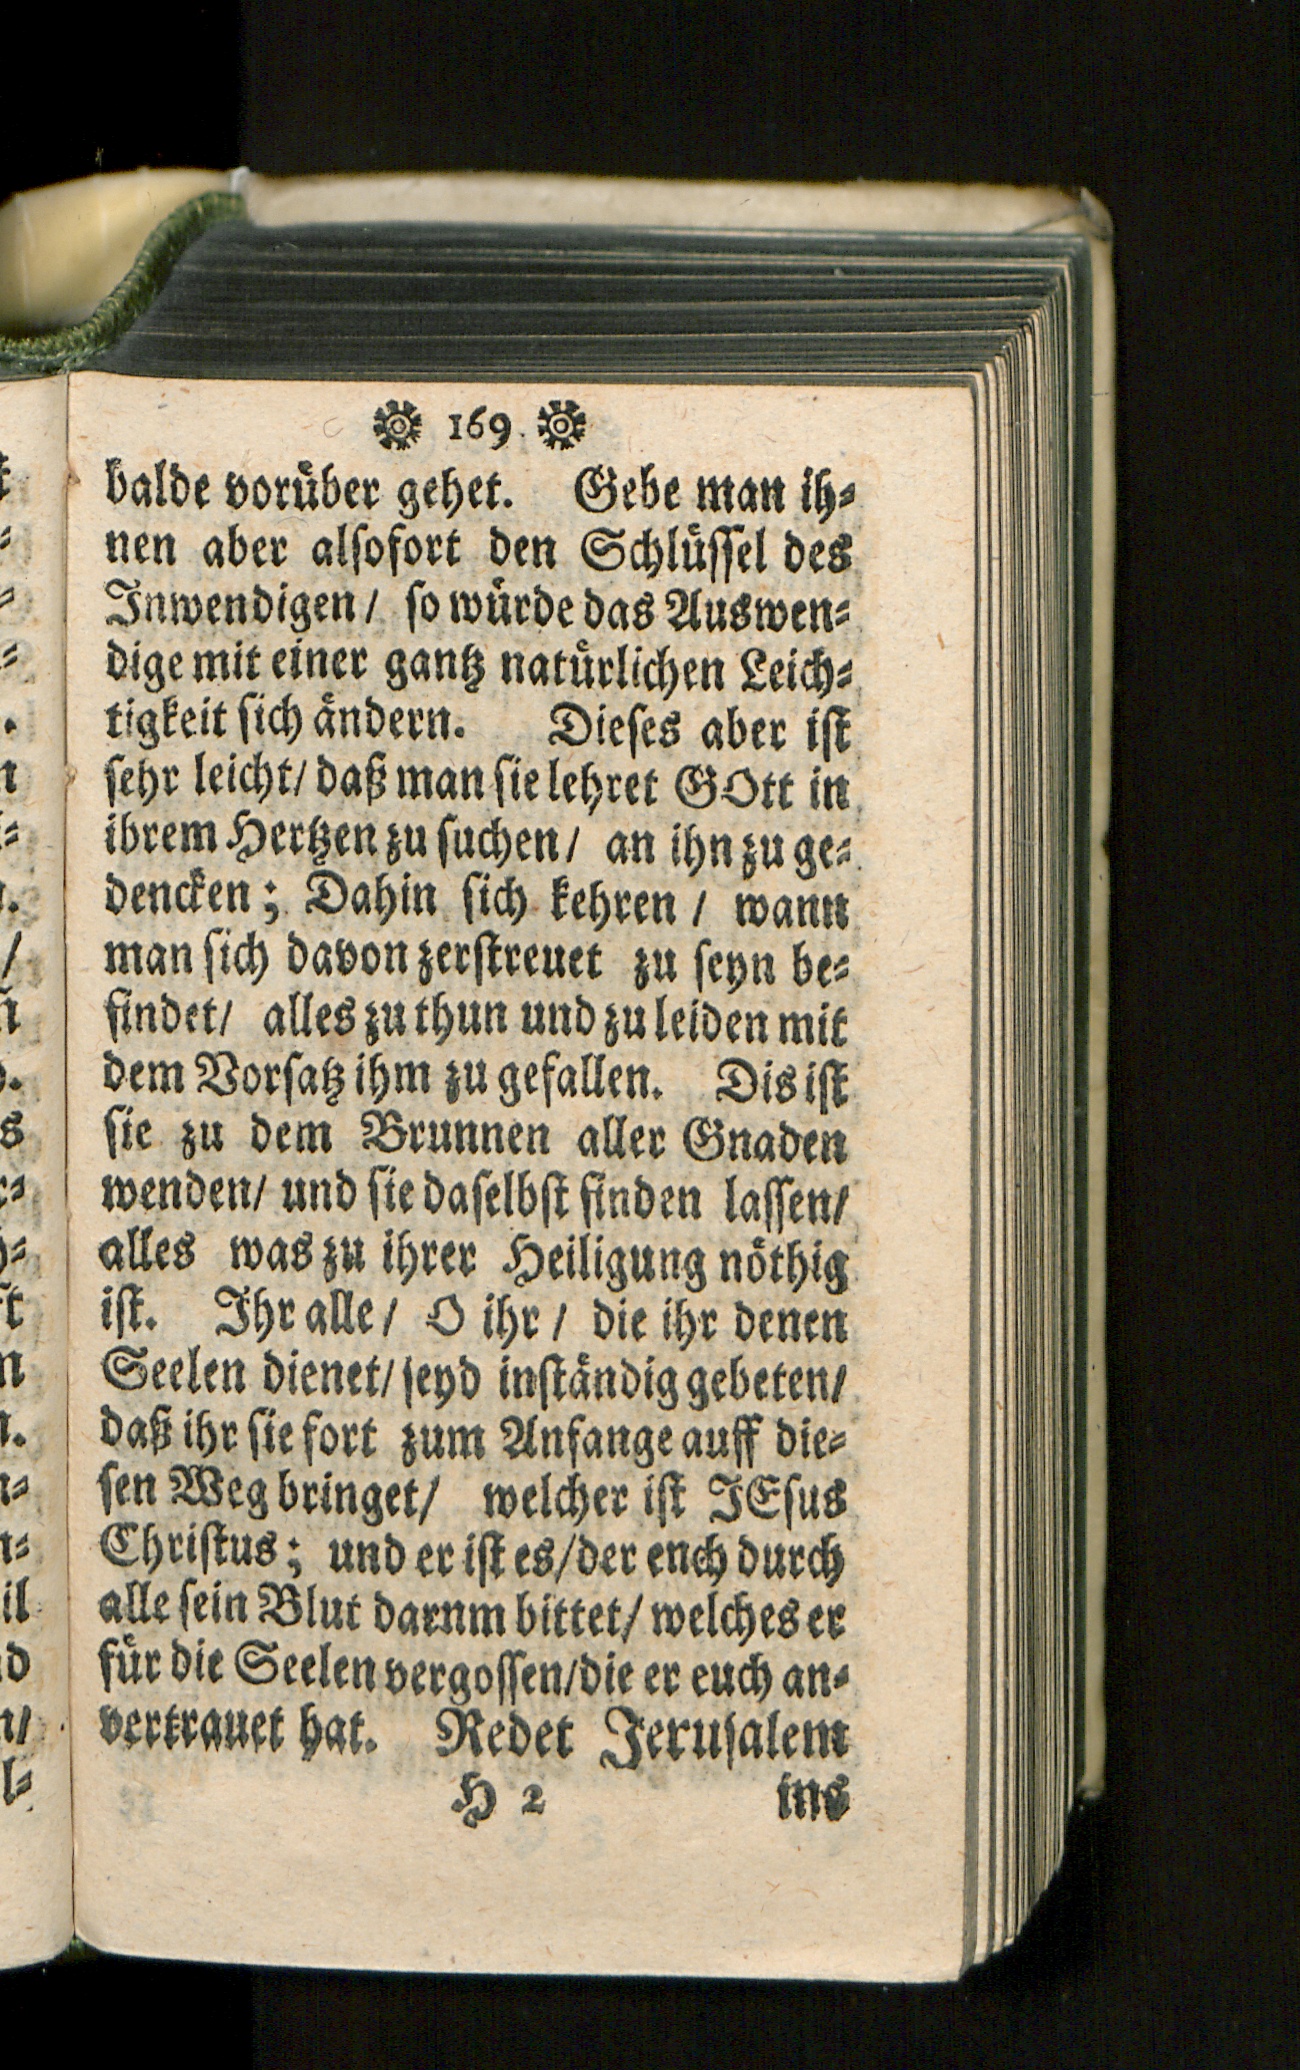 169.
balde vorüber gehet. Gebe man ih-
nen aber alsofort den Schlüssel des
Inwendigen/ so würde das Auswen-
dige mit einer gantz natürlichen Leich-
tigkeit sich ändern. Dieses aber ist
sehr leicht/ daß man sie lehret GOtt in
ibrem Hertzen zu suchen/ an ihn zu ge-
dencken; Dahin sich kehren / wann
man sich davon zerstreuet zu seyn be-
findet/ alles zu thun und zu leiden mit
dem Vorsatz ihm zu gefallen. Dis ist
sie zu dem Brunnen aller Gnaden
wenden/ und sie daselbst finden lassen/
alles was zu ihrer Heiligung nöthig
ist. Ihr alle/ O ihr / die ihr denen
Seelen dienet/ seyd inständig gebeten/
daß ihr sie fort zum Anfange auff die-
sen Weg bringet/ welcher ist JEsus
Christus; und er ist es/ der ench durch
alle sein Blut darnm bittet/ welches er
für die Seelen vergossen/ die er euch an-
vertrauet hat. Redet Jerusalem
H 2 ins